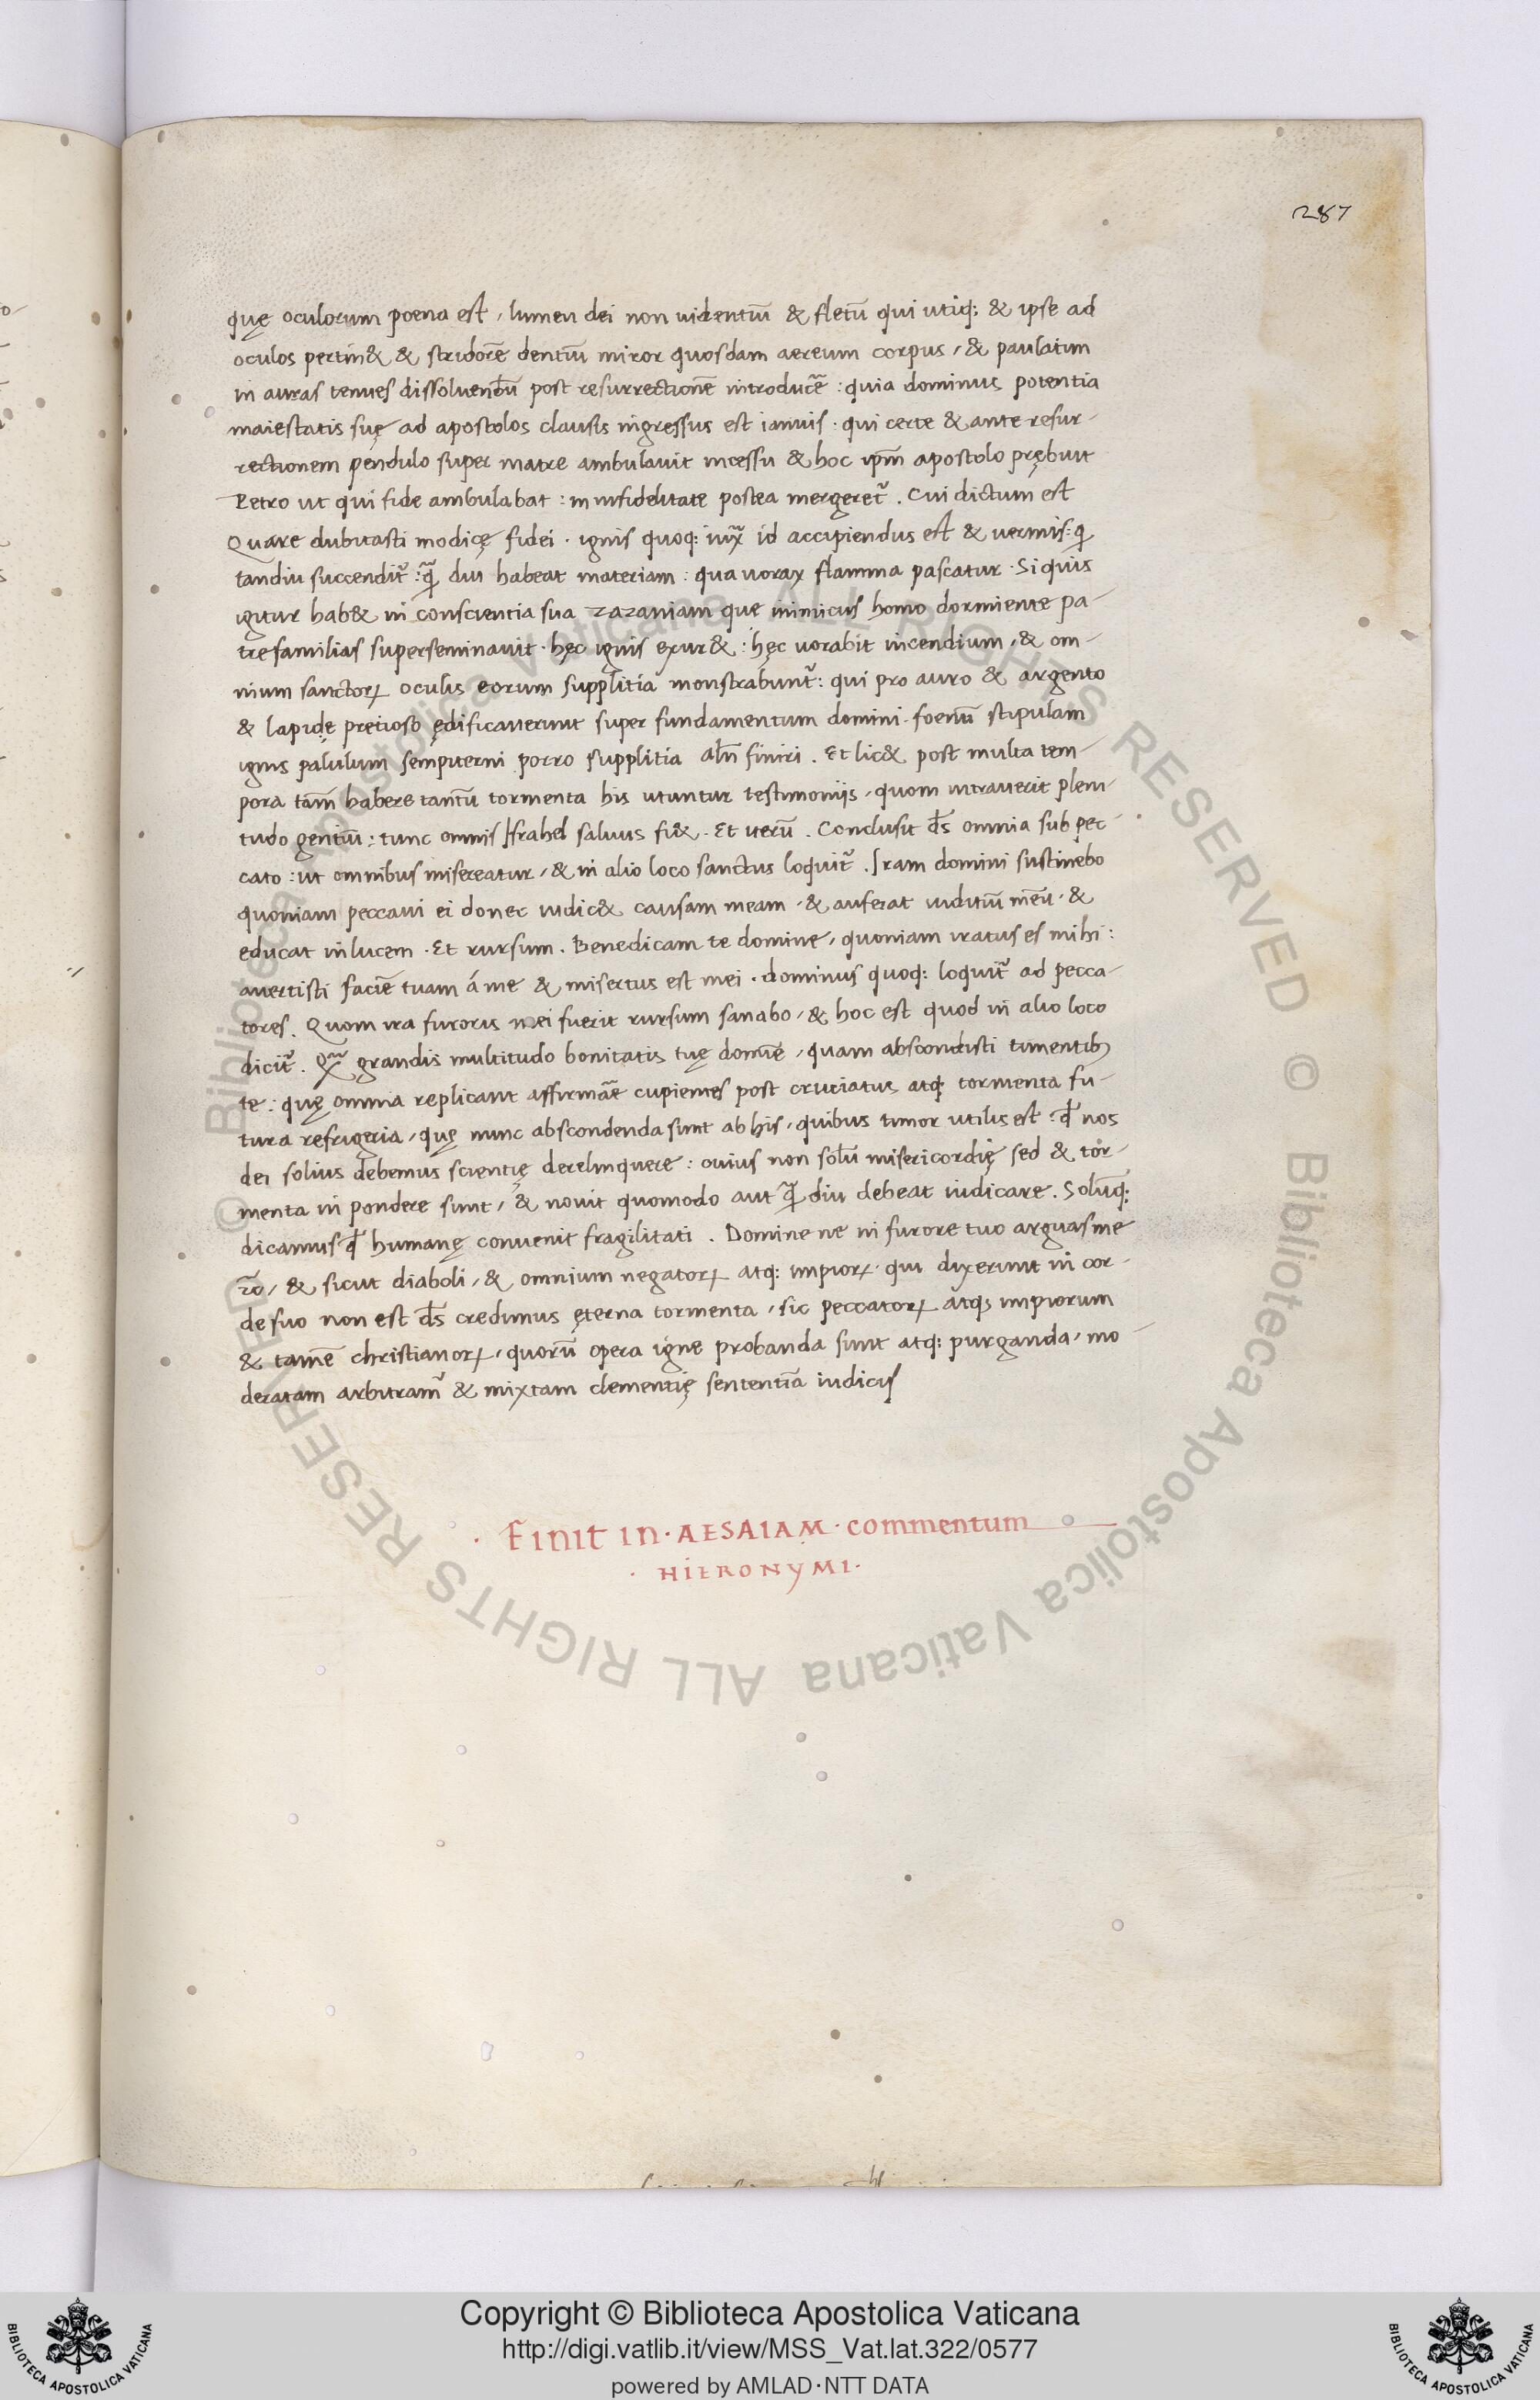 287
quę oculorum poena est, lumen dei non uidentiū & fletū qui utiq: & ipse ad
oculos pertin& & stridorē dentiū miror quosdam aereum corpus, & paulatim
in auras tenues dissoluendū post resurrectionē introducē̄ : quia dominus potentia
maiestatis suę ad apostolos clausis ingressus est ianuis · qui certe & ante resur-
rectionem pendulo super matre ambulauit incessu & hoc ipm̄ apostolo prębuit
Petro ut qui fide ambulabat : in infidelitate postea mergeret᷑ . Cui dictum est
Quare dubitasti modicę fidei · ignis quoq: iux̄ id accipiendus est & uermis: q
tandiu succendit᷑ : q̄ diu habeat materiam : qua uorax flamma pascatur · Si quis
igitur hab& in conscientia sua zazaniam que inimicus homo dormiente pa-
tre familias superseminauit · hęc ignis exur& : hęc uorabit incendium, & om-
nium sanctoꝝ oculis eorum supplitia monstrabunt᷑ : qui pro auro & argento
& lapide pretioso ędificauerunt super fundamentum domini · foenū stipulam
ignis palulum sempiterni porro supplitia aln̄ finiri . Et lic& post multa tem-
pora tam̄ habere tantū tormenta his utuntur testimoniis, quom intrauerit pleni
tudo gentiū : tunc omnis Israhel saluus fi& . Et uerū . Conclusit ds̄ omnia sub pec
cato : ut omnibus misereatur, & in alio loco sanctus loquit᷑ . Iram domini sustinebo
quoniam peccaui ei donec iudic& causam meam · & auferat iuditiū meū · &
educat in lucem · Et rursum . Benedicam te domine, quoniam iratus es mihi :
auertisti faciē tuam á me & misertus est mei · dominus quoq: loquit᷑ ad pecca-
tores . Quom ira furoris mei fuerit rursum sanabo, & hoc est quod in alio loco
dicit᷑ . Qm̄ grandis multitudo bonitatis tuę domīe, quam abscondisti timentibꝫ
te : quę omnia replicant affirmāe cupientes post cruciatus atq tormenta fu-
tura refrigeria, quę nunc abscondenda sunt ab his, quibus timor utilis est : qđ nos
dei solius debemus scientię derelinquere : cuius non solū misericordię sed & tor-
menta in pondere sunt, & nouit quomodo aut q̄ diu debeat iudicare . Solūq:
dicamus qđ humanę conuenit fragilitati . Domine ne in furore tuo arguas me
&, & sicut diaboli, & omnium negatoꝝ atq: impioꝝ · qui dixerunt in cor-
de suo non est ds̄ credimus ęterna tormenta, sic peccatoꝝ atqꝫ impiorum
& tamē christianoꝝ, quorū opera igne probanda sunt atq: purganda, mo-
deratam arbitram᷑ & mixtam clementię sententiā iudicis
· Finit in · AESAIAM · commentum
· HIERONYMI ·
© Biblioteca Apostolica Vaticana ALL RIGHTS RESERVED © Biblioteca Apostolica Vaticana ALL RIGHTS RESERVED
Copyright © Biblioteca Apostolica Vaticana
http://digi.vatlib.it/view/MSS_Vat.lat.322/0577
powered by AMLAD·NTT DATA
BIBLIOTECA APOSTOLICA VATICANA
BIBLIOTECA APOSTOLICA VATICANA